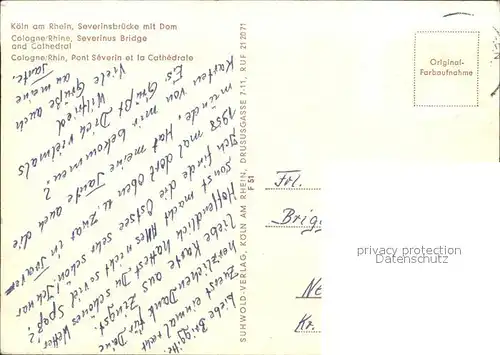 Köln am Rhein, Severinsbrücke mit Dom
Cologne/Rhine, Severinus Bridge
and Cathedral
Cologne/Rhin, Pont Séverin et la Cathédrale
Original-
Farbaufnahme
SUHWOLD-VERLAG, KÖLN AM RHEIN, DRUSUSGASSE 7-11, RUF 21 20 71
F 51
Liebe Brigitte!
Zuerst einmal recht
herzlichen Dank für Deine
liebe Karte aus Zingst.
Hoffentlich hattest Du schönes Wetter
sonst macht alles nicht soviel Spaß!
Ich finde die Ostsee sehr schön. Ich war
1958 mal dort oben u. zwar in Trave-
münde. Hat meine Tante auch die
Karten von mir bekommen?
Es grüßt Dich vielmals
Wilfried
Viele Grüße auch
an meine
Tante.
Frl.
Brig
Ne
Kr.
privacy protection
Datenschutz